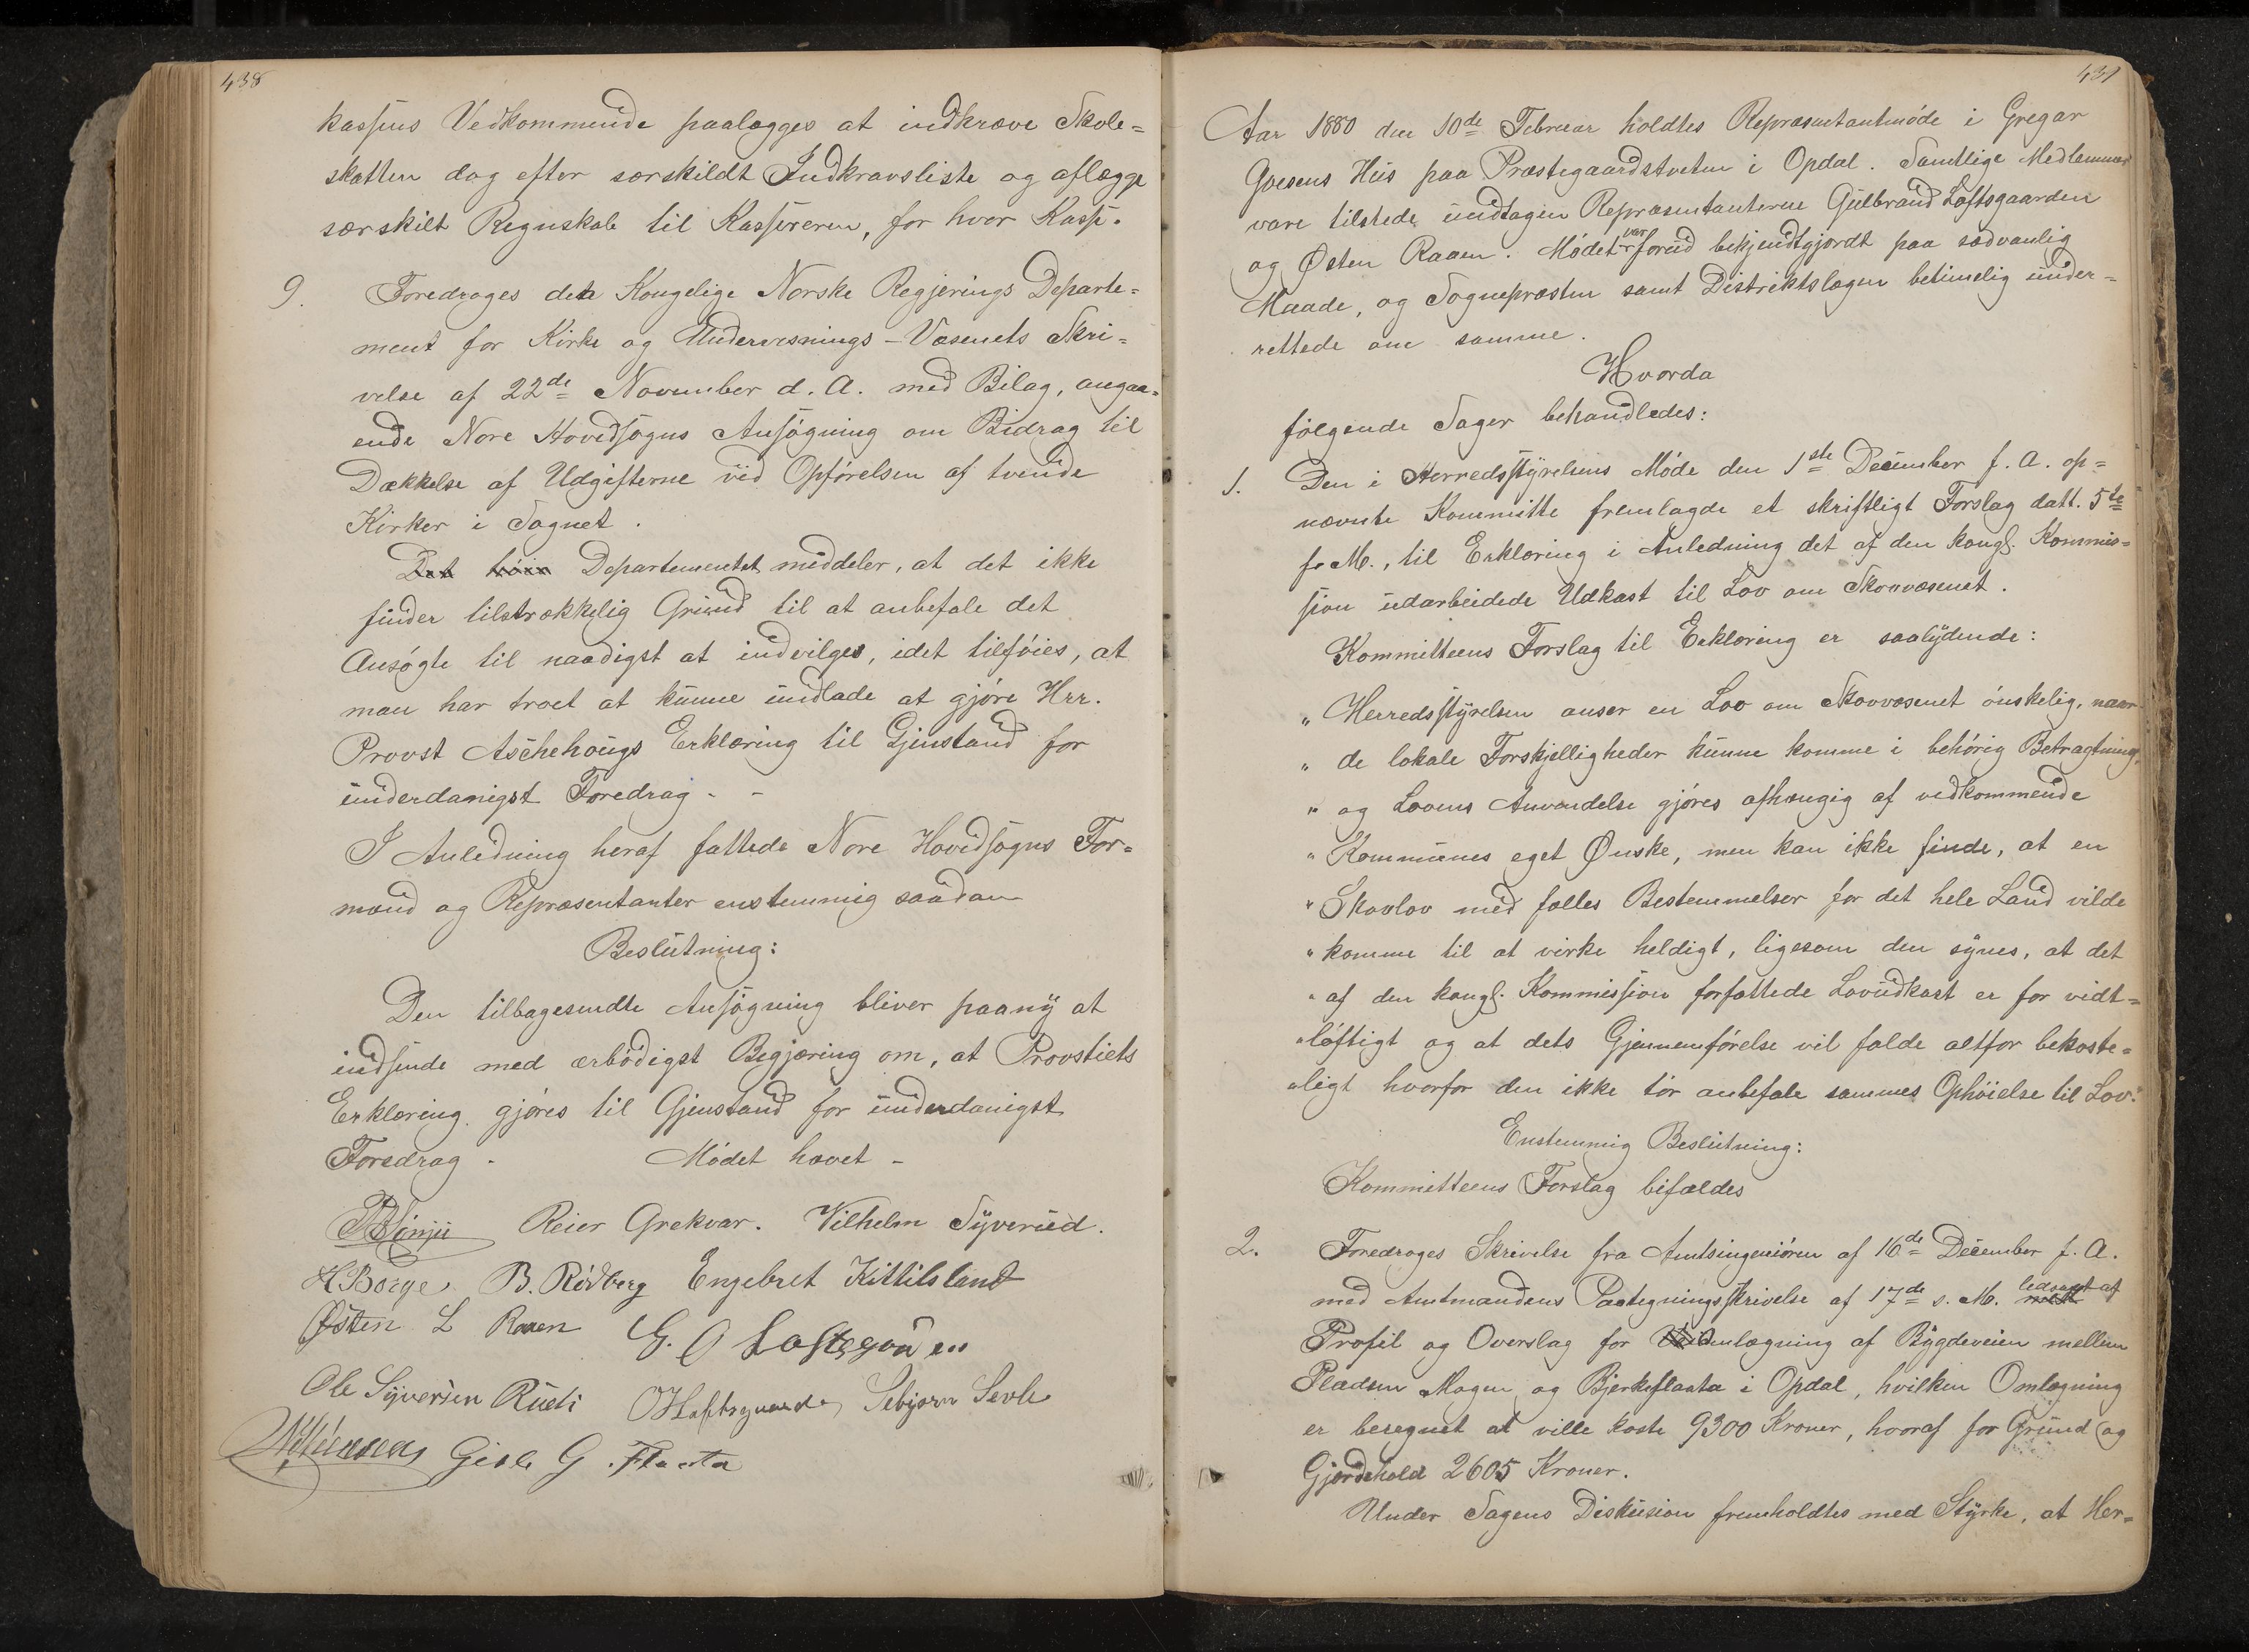 438
kassens Vedkommende paalægges at indkræve Skole=
skatten dog efter særskildt Indkravsliste og aflægge
særskilt Regnskab til Kassereren, for hver Kasse.
9. Foredroges dete Kongelige Norske Regjerings Departe=
ment for Kirke og Undervisnings-Væsenets Skri=
velse af 22de November d. A. med Bilag, angaa=
ende Nore Hovedsogns Ansøgning om Bidrag til
Dækkelse af Udgifterne ved Opførelsen af tvende
Kirker i Sognet.
Det høie Departementet meddeler, at det ikke
finder tilstrækkelig Grund til at anbefale det
Ansøgte til naadigst at indvilges, idet tilføies, at
man har troet at kunne undlade at gjøre Hrr.
Provst Aschehougs Erklæring til Gjenstand for
underdanigst Foredrag. -
I Anledning heraf fattede Nore Hovedsogns For=
mænd og Repræsentanter enstemmig saadan
Beslutning:
Den tilbagesendte Ansøgning bliver paany at
indsende med ærbødigst Begjæring om, at Provstiets
Erklæring gjøres til Gjenstand for underdanigst
Foredrag. Mødet hævet -
Reier Grekvar. Vilhelm Syverud.
H Borge. B. Rødberg Engebret Kittilsland
Østen L Raaen G. O Loftsgaarden
Ole Syversen Rudi OHLoftsgaarden Sebjørn Sevle
Gisle G. Flaata
439
Aar 1880 den 10de Februar holdtes Repræsentantmøde i Gregar
Goesens Hus paa Præstegaardstveten i Opdal. Samtlige Medlemmer
vare tilstede undtagen Repræsentanterne Gulbrand Loftsgaarden
og Østen Raaen. Mødet var forud bekjendtgjordt paa sædvanlig
Maade, og Sognepræsten samt Distriktslægen betimelig under=
rettede om samme.
Hvorda
følgende Sager behandledes:
1. Den i Herredsstyrelsens Møde den 1ste December f. A. op=
nævnte Kommitte fremlagde et skriftligt Forslag datt. 5te
f. M., til Erklæring i Anledning det af den kongl. Kommis=
sion udarbeidede Udkast til Lov om Skovvæsenet.
Kommitteens Forslag til Erklæring er saalydende:
„ Herredsstyrelsen anser en Lov om Skovvæsenet ønskelig, naar
„ de lokale Forskjelligheder kunne komme i behørig Betragtning,
„ og Lovens Anvendelse gjøres afhængig af vedkommende
„ Kommunes eget Ønske, men kan ikke finde, at en
„ Skovlov med fælles Bestemmelser for det hele Land vilde
„ komme til at virke heldigt, ligesom den synes, at det
„ af den kongl. Kommission forfattede Lovudkast er for vidt=
„ løftigt og at dets Gjennemførelse vil falde altfor bekoste=
„ ligt hvorfor den ikke tør anbefale sammes Ophøielse til Lov."
Enstemmig Beslutning:
Kommitteens Forslag bifaldes
2. Foredroges Skrivelse fra Amtsingeniøren af 16de December f. A.
med Amtmandens Paategningsskrivelse af 17de s. M. ledsaget af
Profil og Overslag for Omlægning af Bygdeveien mellem
Pladsen Mogen og Bjerkeflaata i Opdal, hvilken Omlægning
er beregnet at ville koste 9300 Kroner, hvoraf for Grund og
Gjerdehold 2605 Kroner.
Under Sagens Diskusion fremholdtes med Styrke, at Her=